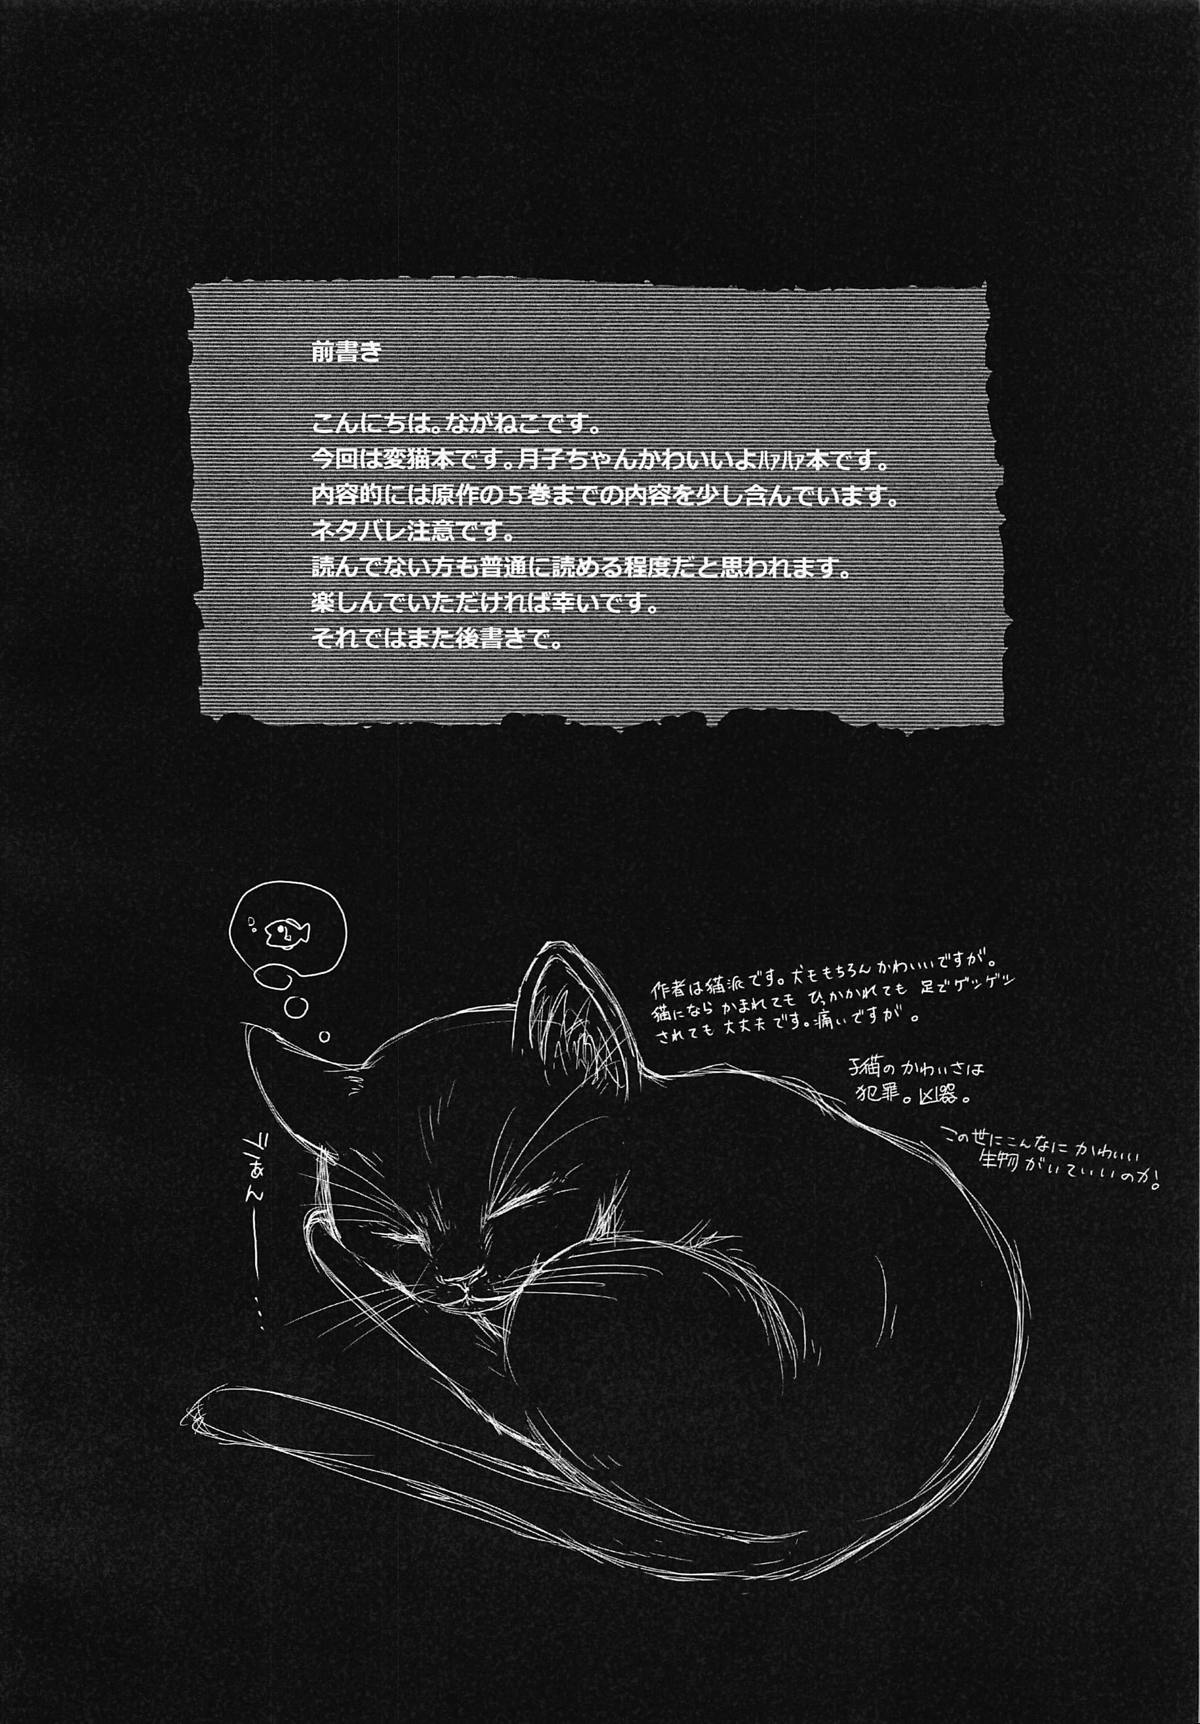 前書き
こんにちは。ながねこです。
今回は変猫本です。月子ちゃんかわいいよﾊｧﾊｧ本です。
内容的には原作の５巻までの内容を少し含んでいます。
ネタバレ注意です。
読んでない方も普通に読める程度だと思われます。
楽しんでいただければ幸いです。
それではまた後書きで。
作者は猫派です。犬ももちろんかわいいですが。
猫になら かまれても ひっかかれても 足でゲシゲシ
されても 大丈夫です。痛いですが。
子猫のかわいさは
犯罪。凶器。
この世にこんなに かわいい
生物がいていいのか。